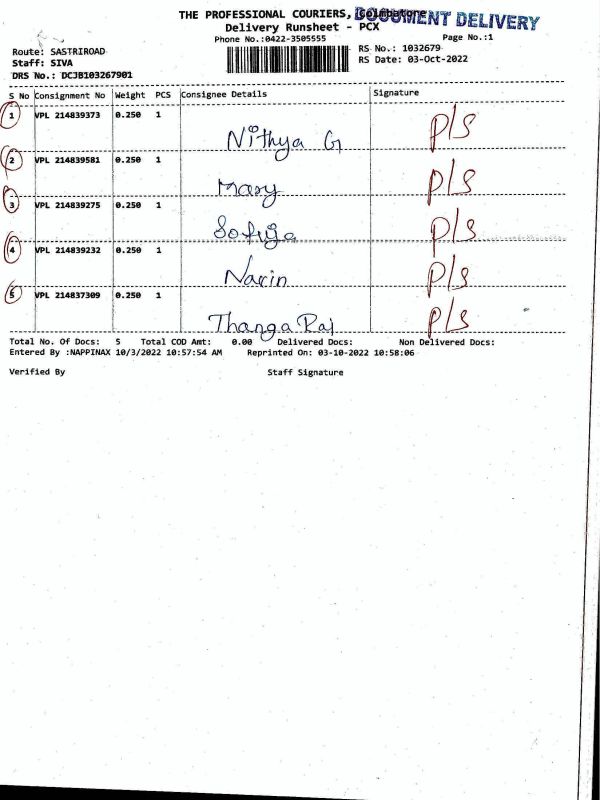 THE PROFESSIONAL COURIERS, Coimbatore
DOCUMENT DELIVERY
Delivery Runsheet - PCX
Phone No.:0422-3505555
Page No.:1
Route: SASTRIROAD
RS No.: 1032679
Staff: SIVA
RS Date: 03-Oct-2022
DRS No.: DCJB103267901
S No Consignment No Weight PCS Consignee Details Signature
1 VPL 214839373 0.250 1
Nithya G P/S
2 VPL 214839581 0.250 1
Mary P/S
3 VPL 214839275 0.250 1
Sofiya P/S
4 VPL 214839232 0.250 1
Navin P/S
5 VPL 214837309 0.250 1
Thanga Raj P/S
Total No. Of Docs: 5 Total COD Amt: 0.00 Delivered Docs: Non Delivered Docs:
Entered By :NAPPINAX 10/3/2022 10:57:54 AM Reprinted On: 03-10-2022 10:58:06
Verified By Staff Signature